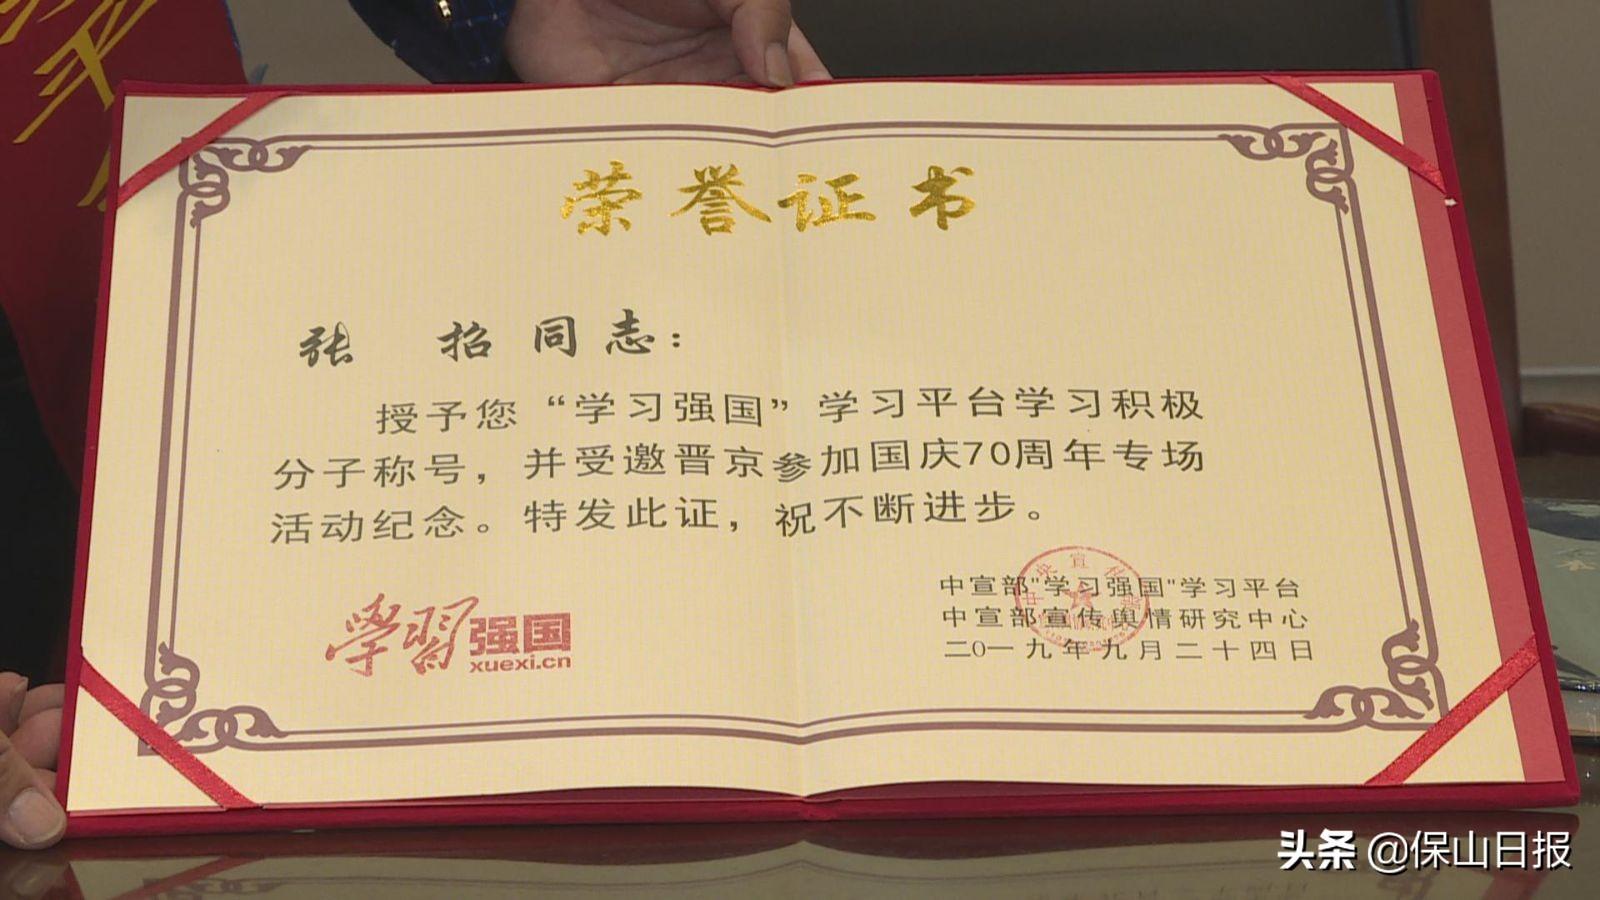 荣誉证书
张 招同志：
授予您“学习强国”学习平台学习积极
分子称号，并受邀晋京参加国庆70周年专场
活动纪念。特发此证，祝不断进步。
学習强国
xuexi.cn
中宣部"学习强国"学习平台
中宣部宣传舆情研究中心
二0一九年九月二十四日
头条 @保山日报